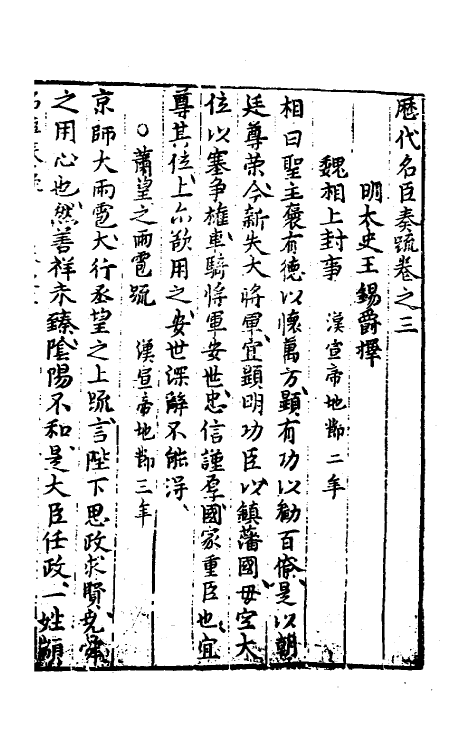 歷代名臣奏疏卷之三
明太史王錫爵擇
魏相上封事 漢宣帝地節二年
相曰聖主褒有德以懷萬方顯有功以勸百僚是以朝
廷尊榮今新失大將軍宜顯明功臣以鎮藩國毋空大
位以塞爭權車騎將軍安世忠信謹厚國家重臣也宜
尊其位上亦欲用之安世深辭不能得
○蕭望之雨雹疏 漢宣帝地節三年
京師大雨雹大行丞望之上疏言陛下思政求賢堯舜
之用心也然善祥未臻陰陽不和是大臣任政一姓顓